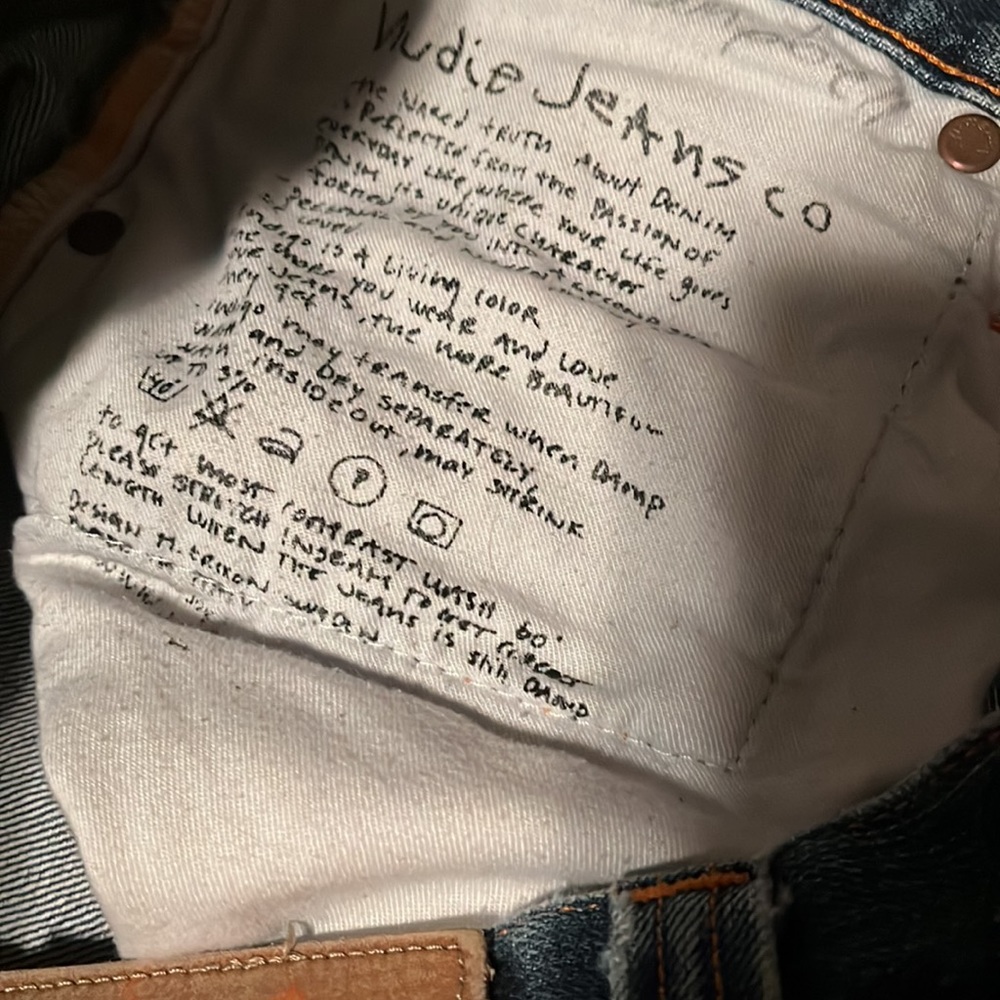 Nudie Jeans co
the naked truth About Denim
. Reflected from the PASSION OF
everyday life, where your life gives
Denim its unique character
- formed by you into
A second skin
- Personal
Indigo is A living color
the more you wear And love
they jeans, the more BeautifuL
they get
. Indigo may transfer when DAmp
wash and Dry separately,
wash insideout, may shrink
up to 3%
40
P
to get most contrast wash 60°
PLEASE STRETCH INSEAM TO GET correct
LENGTH WHEN THE JEANS is still DAmp
Design M.
made in Italy